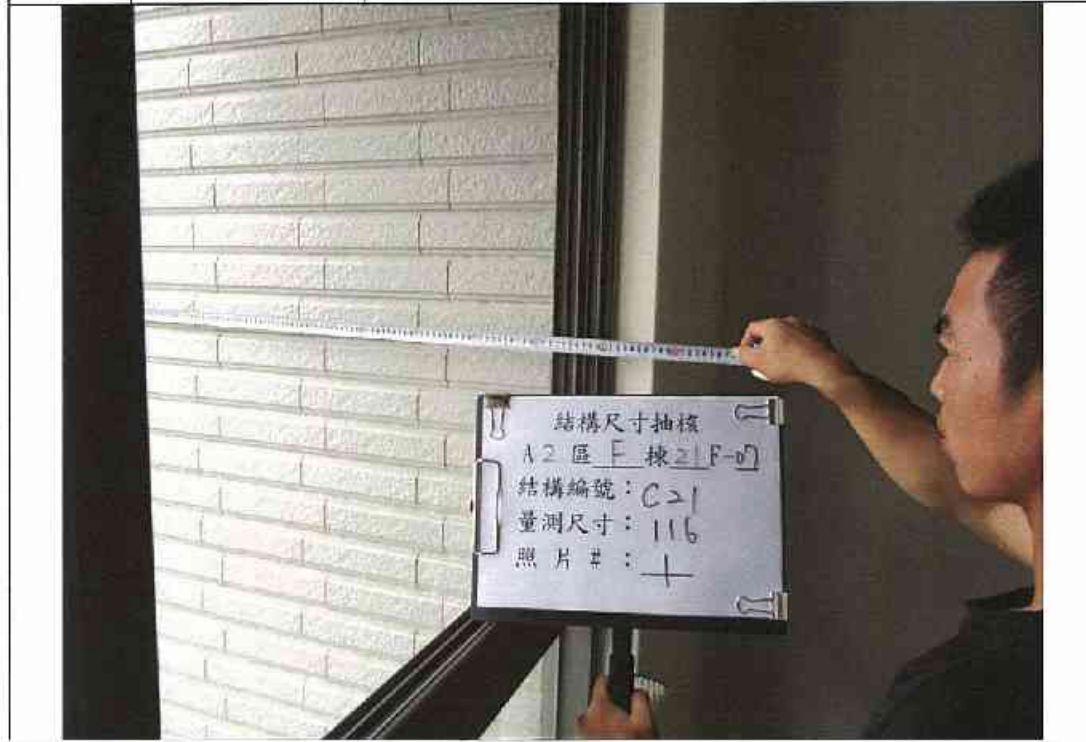 結構尺寸抽核
A2區 F 棟21F-07
結構編號：C21
量測尺寸：116
照片#：